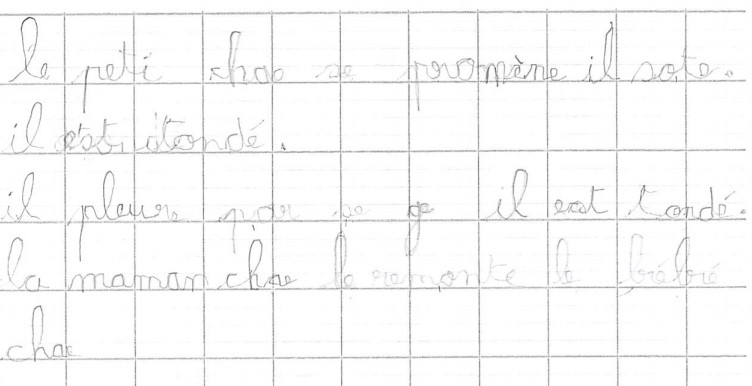 le peti chao se promène il sote.
il est tondé.
il pleure par se qe il est tondé.
la maman chae le remonte le bébé
chae